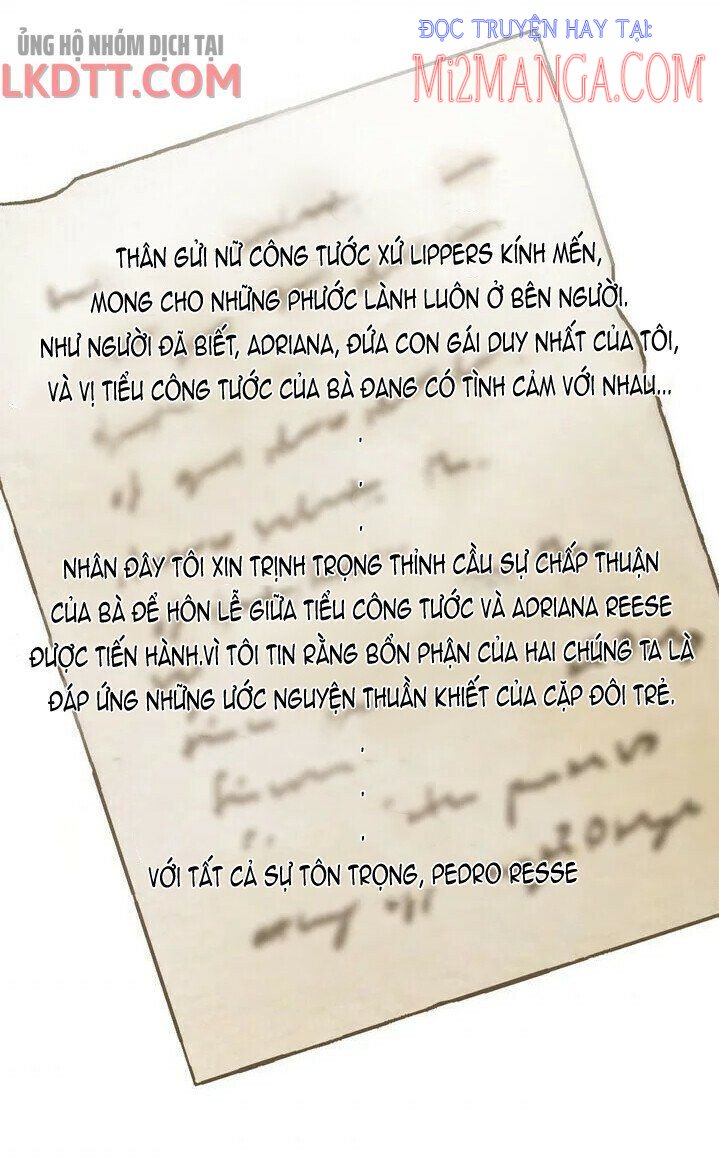 ỦNG HỘ NHÓM DỊCH TẠI
LKDTT.COM
ĐỌC TRUYỆN HAY TẠI:
MI2MANGA.COM
THÂN GỬI NỮ CÔNG TƯỚC XỨ LIPPERS KÍNH MẾN,
MONG CHO NHỮNG PHƯỚC LÀNH LUÔN Ở BÊN NGƯỜI.
NHƯ NGƯỜI ĐÃ BIẾT, ADRIANA, ĐỨA CON GÁI DUY NHẤT CỦA TÔI,
VÀ VỊ TIỂU CÔNG TƯỚC CỦA BÀ ĐANG CÓ TÌNH CẢM VỚI NHAU...
.
.
.
NHÂN ĐÂY TÔI XIN TRỊNH TRỌNG THỈNH CẦU SỰ CHẤP THUẬN
CỦA BÀ ĐỂ HÔN LỄ GIỮA TIỂU CÔNG TƯỚC VÀ ADRIANA REESE
ĐƯỢC TIẾN HÀNH.VÌ TÔI TIN RẰNG BỔN PHẬN CỦA HAI CHÚNG TA LÀ
ĐÁP ỨNG NHỮNG ƯỚC NGUYỆN THUẦN KHIẾT CỦA CẶP ĐÔI TRẺ.
.
.
.
VỚI TẤT CẢ SỰ TÔN TRỌNG, PEDRO RESSE